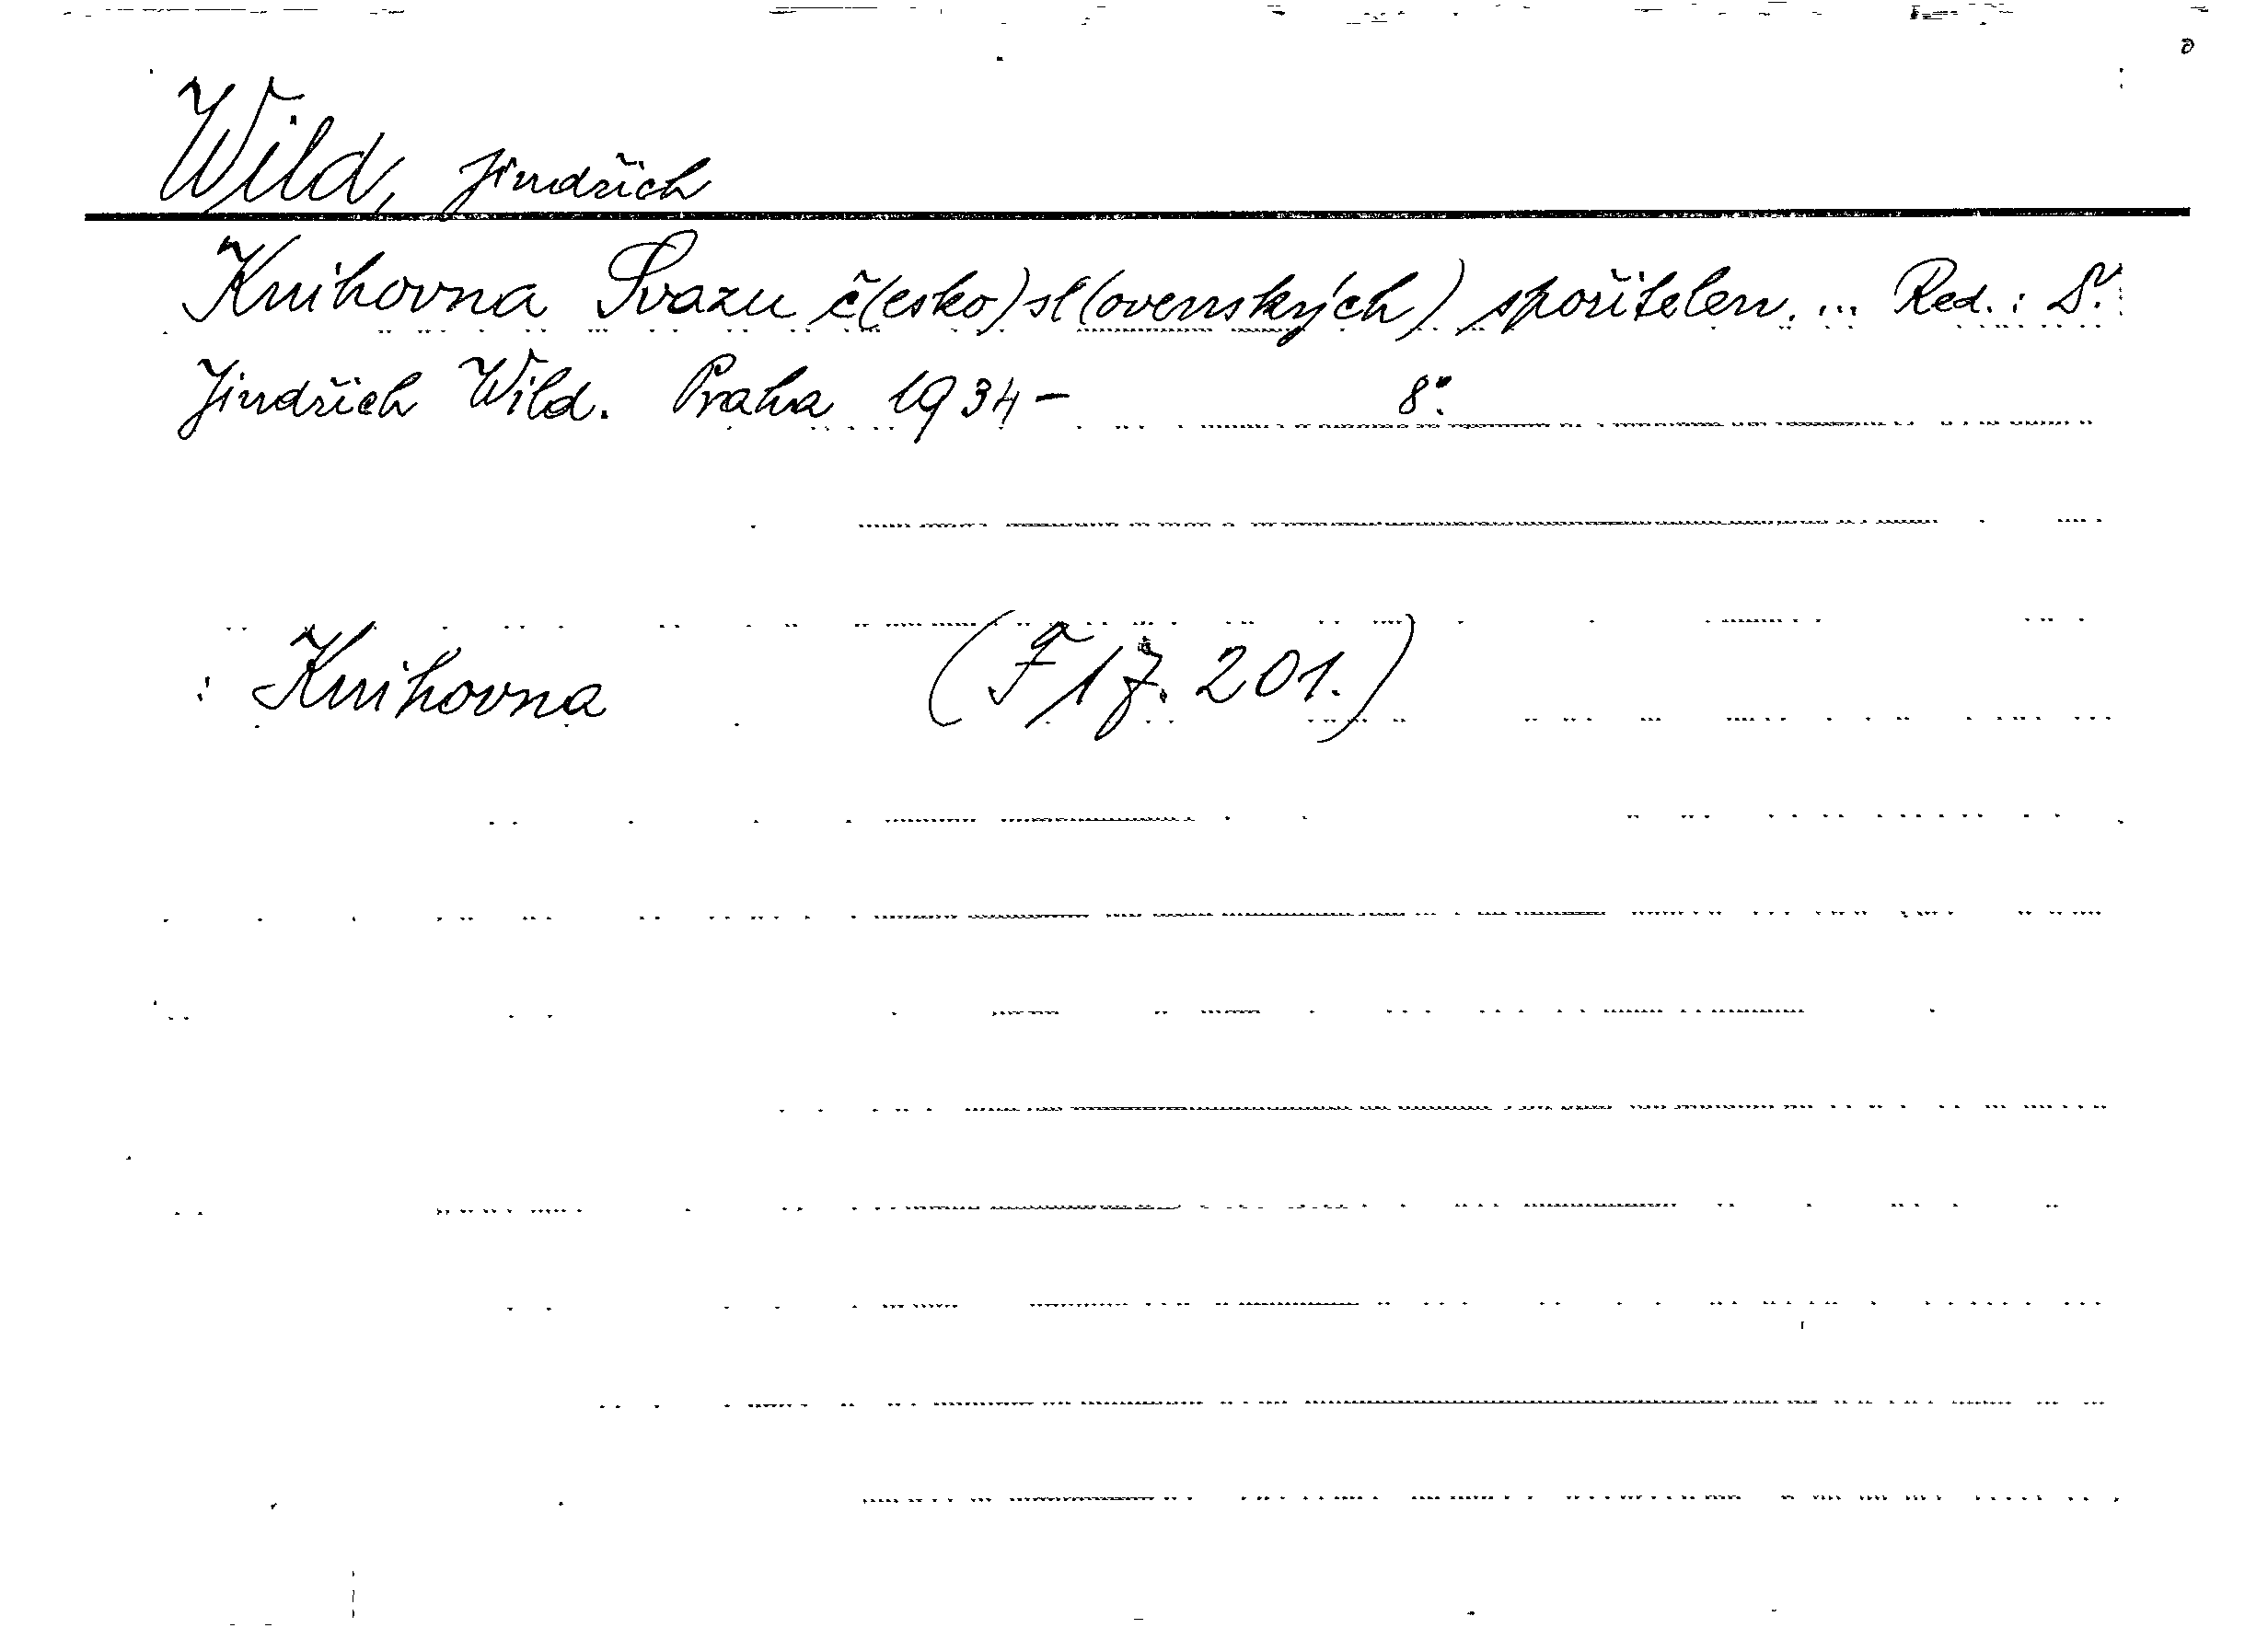 Wild, Jindřich
Knihovna Svazu č(esko)sl(ovenských) spořitelen. ... Red.: Dr.
Jindřich Wild. Praha 1934- 8°.
: Knihovna (F 17. 201.)